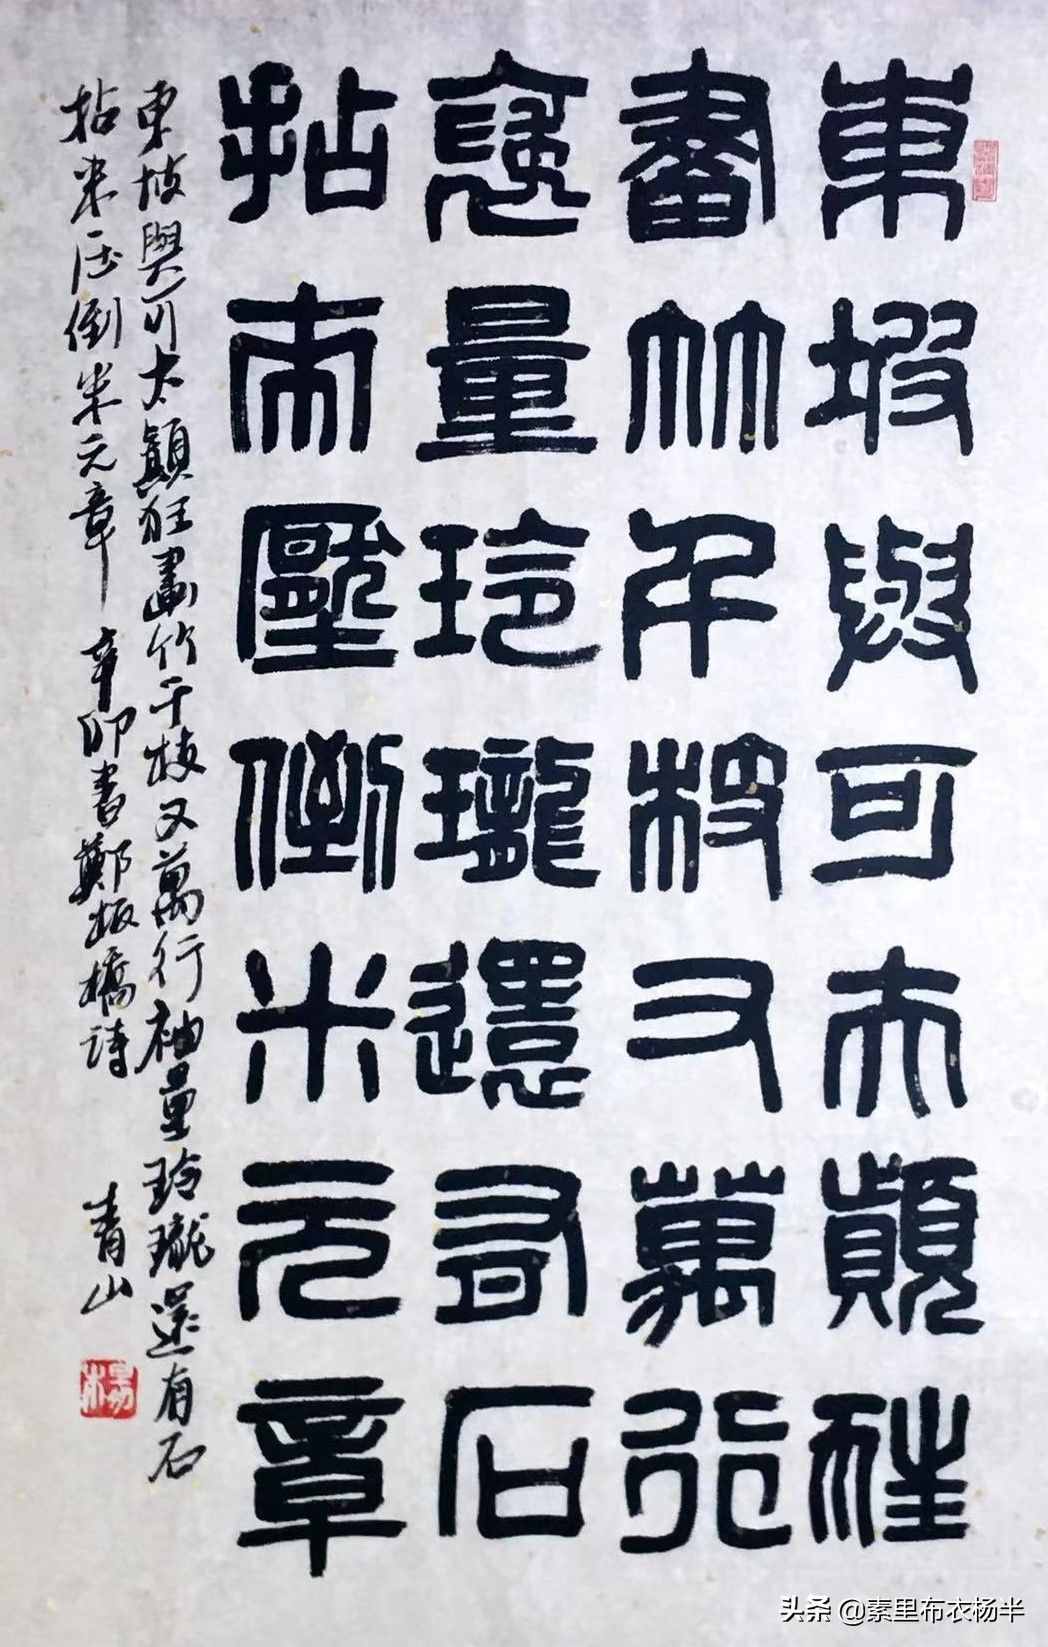 東坡與可太顛狂
畫竹千枝又萬行
量玲瓏還有石
拈來壓倒米元章
東坡與可太顛狂畫竹千枝又萬行袖量玲瓏還有石
拈來压倒米元章 辛卯書鄭板橋詩 青山
头条 @素里布衣杨半